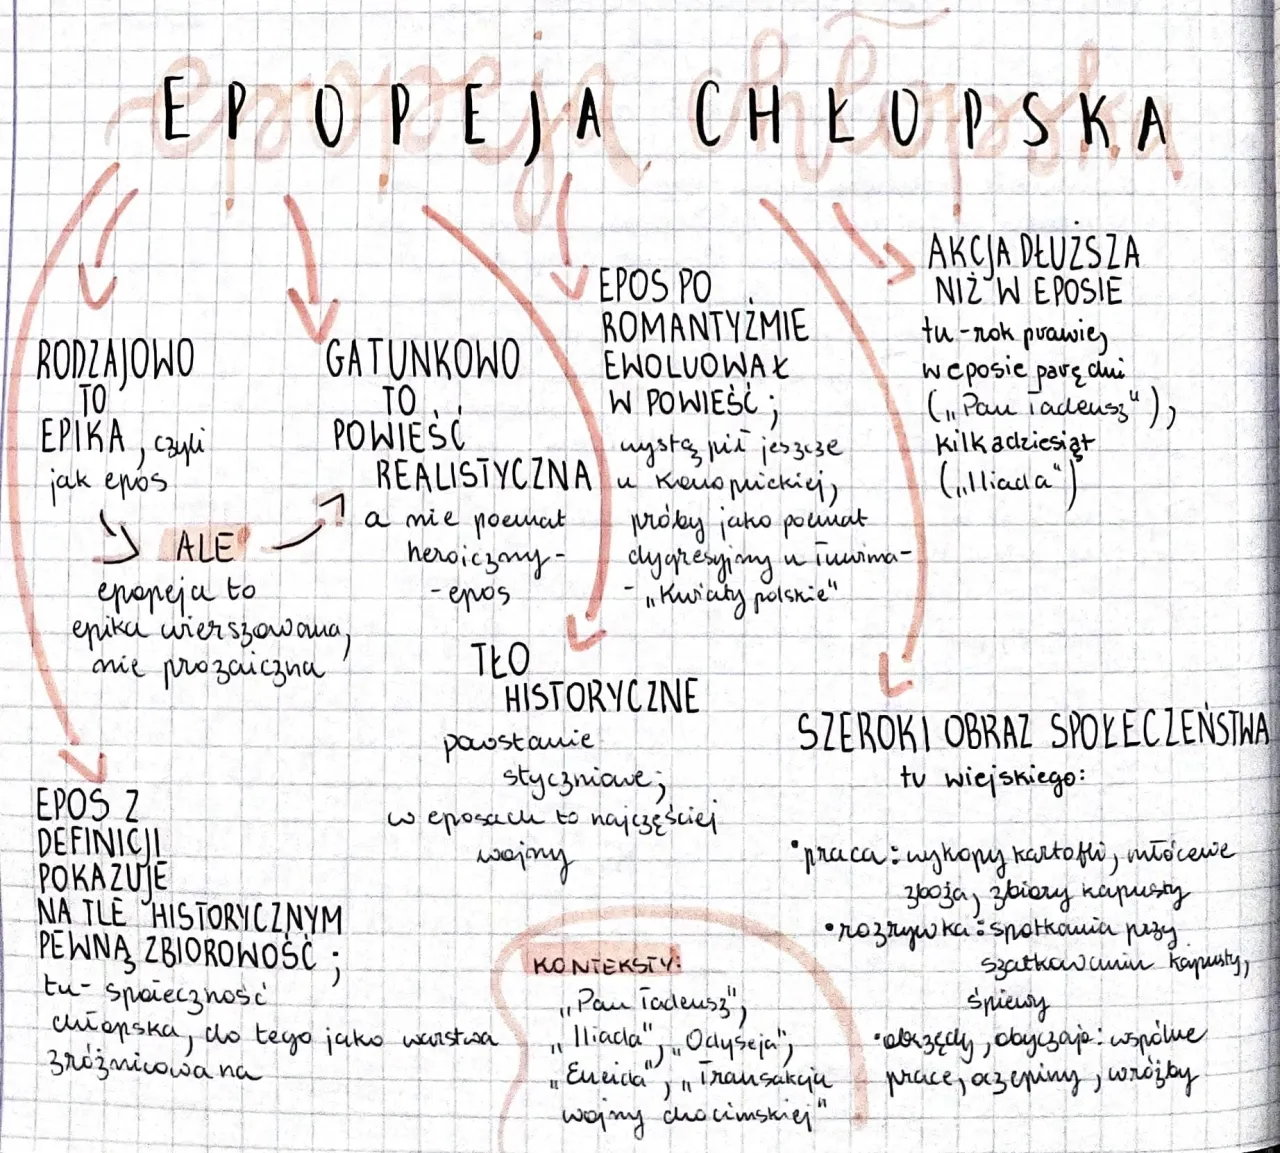 EPOPEJA CHŁOPSKA
RODZAJOWO
TO
EPIKA, czyli
jak epos
ALE
epopeja to
epika wierszowana,
nie prozaiczna
GATUNKOWO
TO
POWIEŚĆ
REALISTYCZNA
a nie poemat
heroiczny-
-epos
EPOS PO
ROMANTYŹMIE
EWOLUOWAŁ
W POWIEŚĆ;
wystąpił jeszcze
u Konopnickiej,
próby jako poemat
dygresyjny u Tuwima-
- „Kwiaty polskie"
AKCJA DŁUŻSZA
NIŻ W EPOSIE
tu - rok prawie,
w eposie parę dni
(„Pan Tadeusz"),
kilkadziesiąt
(„Iliada")
TŁO
HISTORYCZNE
powstanie
styczniowe;
w eposach to najczęściej
wojny
SZEROKI OBRAZ SPOŁECZEŃSTWA
tu wiejskiego:
•praca: wykopy kartofli, młócenie
zboża, zbiory kapusty
•rozrywka: spotkania przy
szatkowaniu kapusty,
śpiewy
•obrzędy, obyczaje: wspólne
prace, oczepiny, wróżby
EPOS Z
DEFINICJI
POKAZUJE
NA TLE HISTORYCZNYM
PEWNĄ ZBIOROWOŚĆ;
tu- społeczność
chłopska, do tego jako warstwa
zróżnicowana
KONTEKSTY:
„Pan Tadeusz",
„Iliada", „Odyseja",
„Eneida", „Transakcja
wojny chocimskiej"